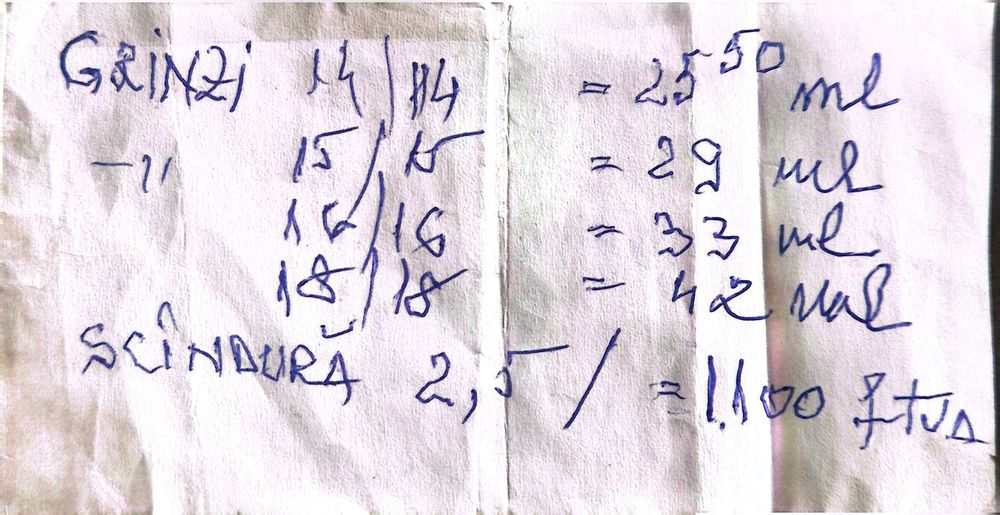 GRINZI 14/14 = 25⁵⁰ ml
—〃 15/15 = 29 ml
16/16 = 33 ml
18/18 = 42 ml
SCÎNDURĂ 2,5 / = 1.100 f tva